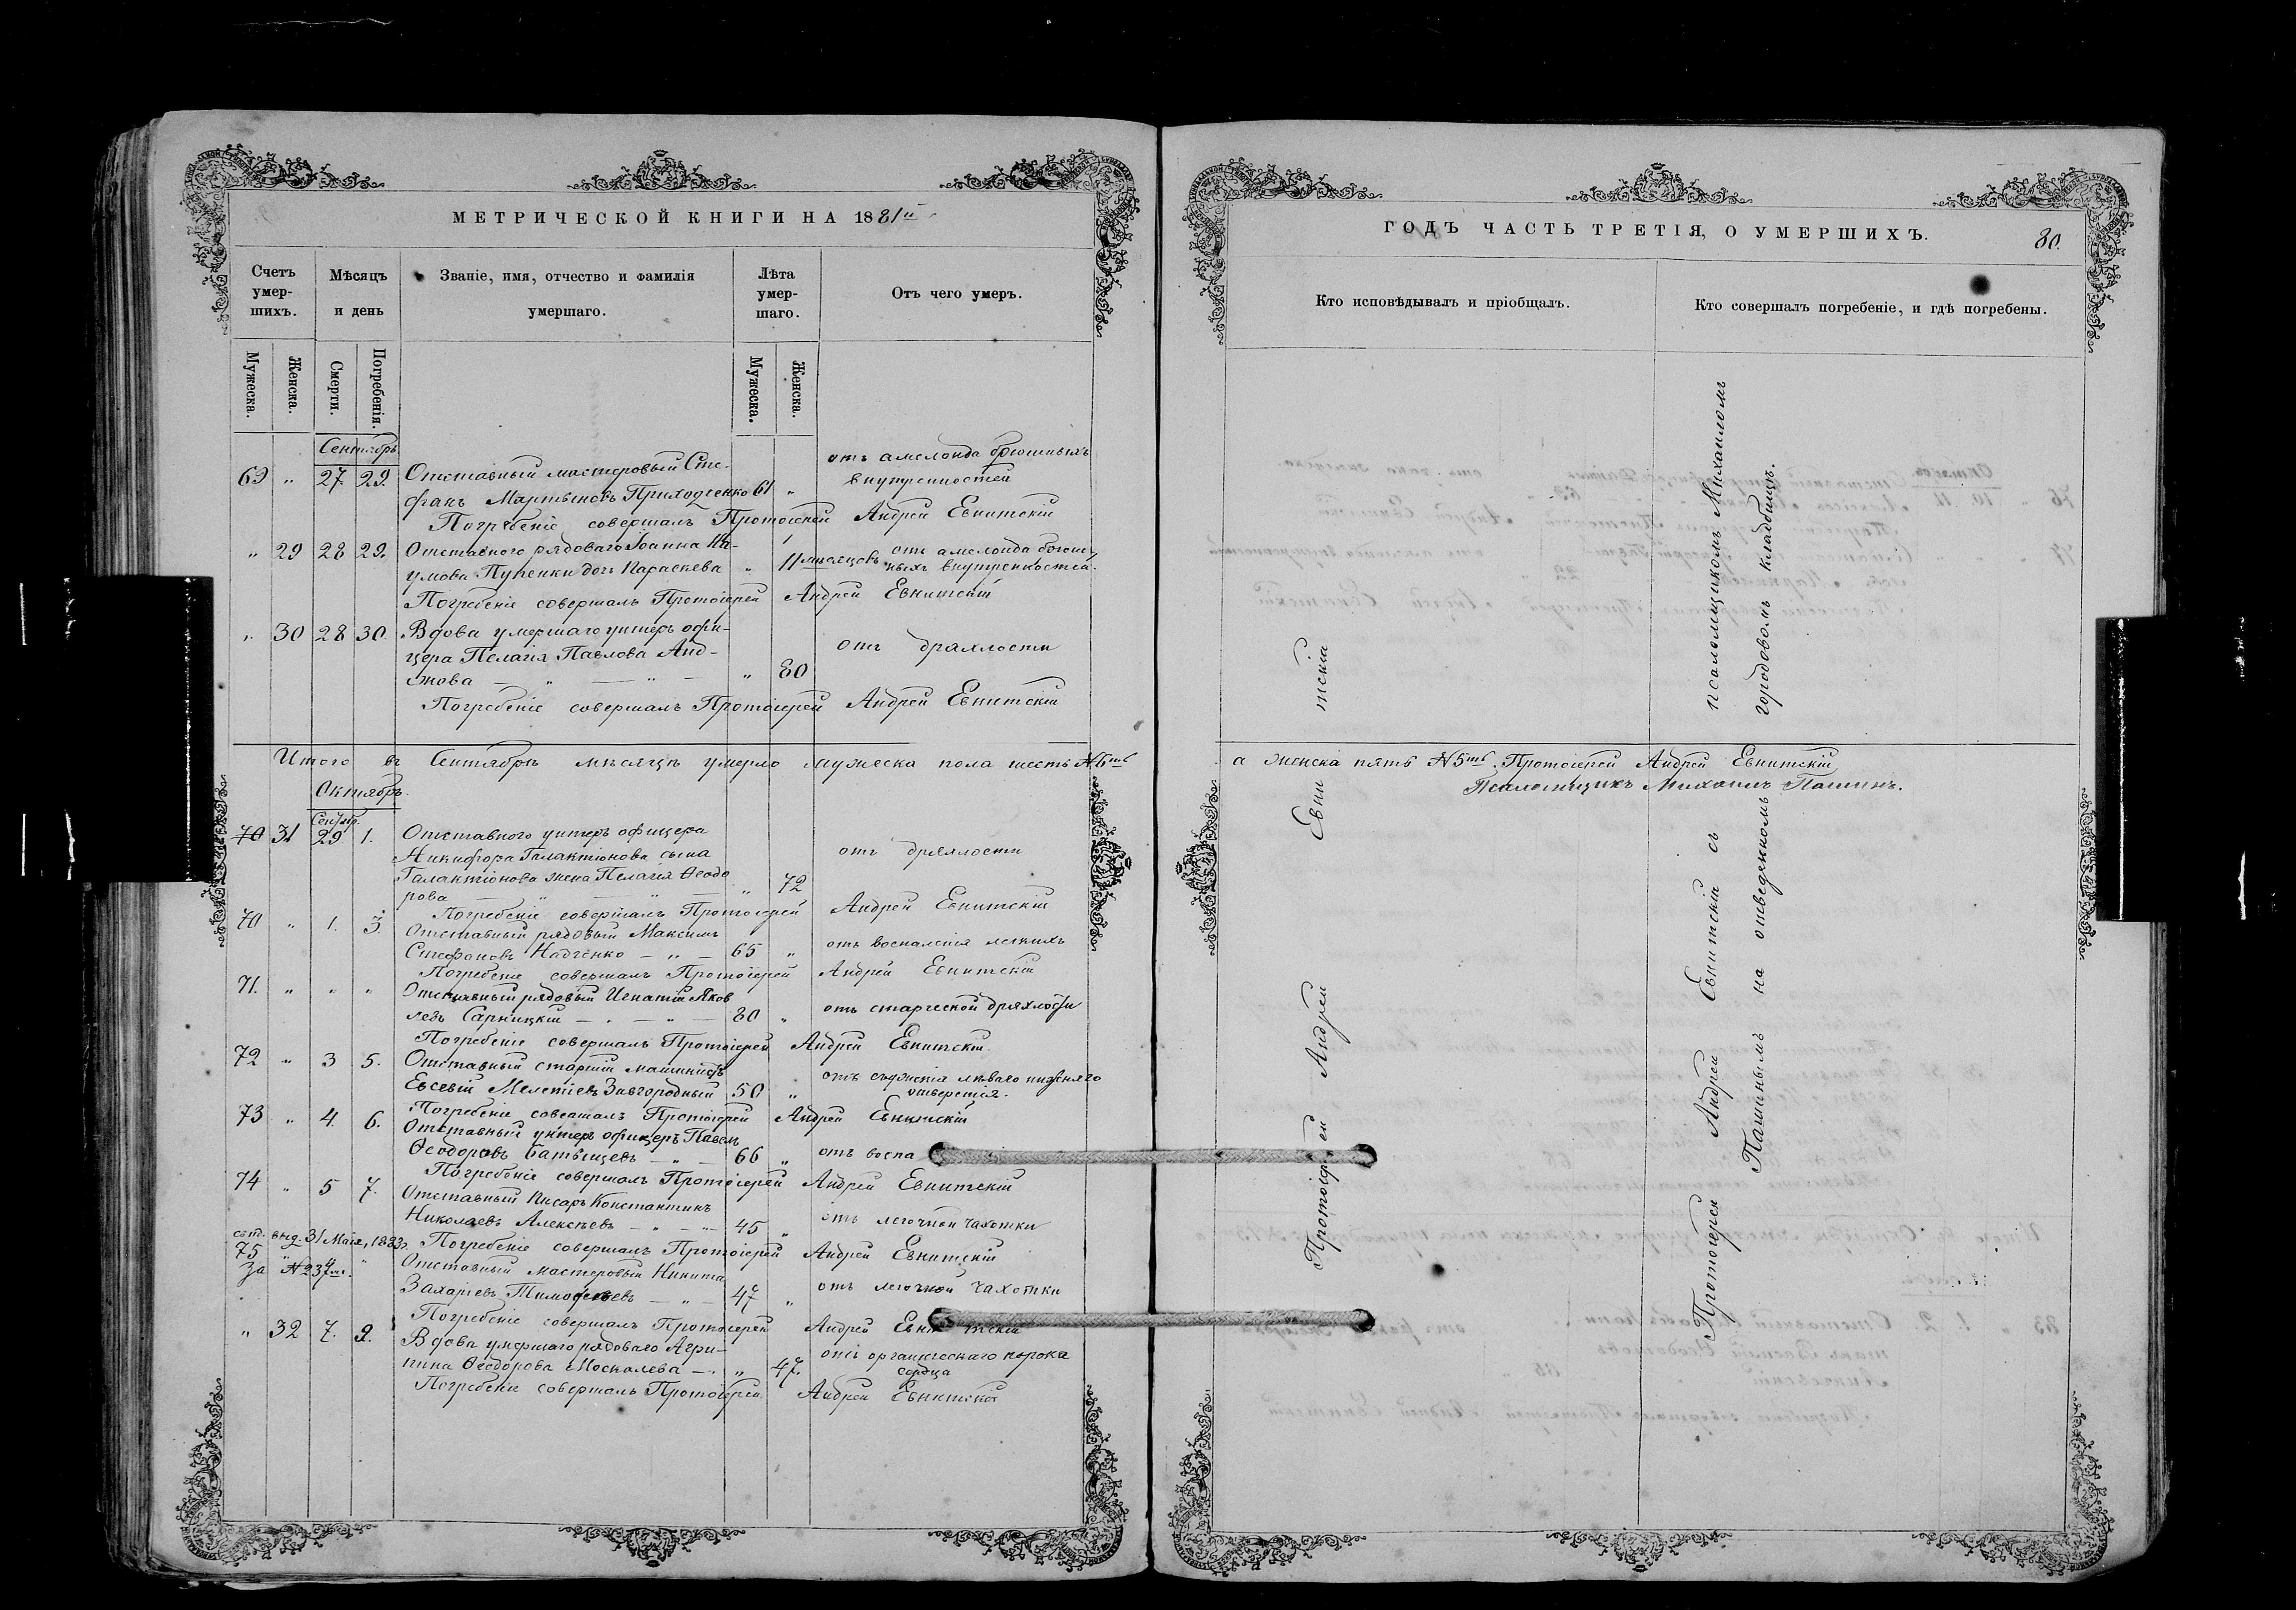 МЕТРИЧЕСКОЙ КНИГИ НА 1881й
Счетъ умер-шихъ.
Мѣсяцъ и день
Званіе, имя, отчество и фамилія умершаго.
Лѣта умер-шаго.
Отъ чего умеръ.
Мужеска.
Женска.
Смерти.
Погребенія.
Мужеска.
Женска.
Сентябрь
69 " 27. 29. Отставный мастеровый Сте-
фанъ Мартыновъ Приходченко 61 "
отъ амелоида брюшныхъ
внутренностей
Погребеніе совершалъ Протоіерей Андрей Евнитскій
" 29 28 29. Отставного рядоваго Іоанна На-
умова Пупенки дочь Параскева " 11 мѣсяцовъ
отъ амелоида брюш-
ныхъ внутренностей.
Погребеніе совершалъ Протоіерей Андрей Евнитскій
" 30 28 30. Вдова умершаго унтеръ офи-
цера Пелагія Павлова
" 80
отъ дряхлости
Погребеніе совершалъ Протоіерей Андрей Евнитскій
Итого въ Сентябрѣ мѣсяцѣ умерло мужеска пола шесть №6ть
Октябрь.
Сентбр.
70 31 29 1. Отставного унтеръ офицера
Никифора Галактіонова сына
Галактіонова жена Пелагія Ѳеодо
рова " 72
отъ дряхлости
Погребеніе совершалъ Протоіерей Андрей Евнитскій
70 " 1. 3. Отставный рядовый Максимъ
Стефановъ Надченко 65 "
отъ воспаленія легкихъ
Погребеніе совершалъ Протоіерей Андрей Евнитскій
71. " " " Отставный рядовый Игнатій Яков
левъ Сарницкій 80 "
отъ старческой дряхлости
Погребеніе совершалъ Протоіерей Андрей Евнитскій.
72 " 3 5. Отставный старшій машинистъ
Евсевій Мелетіевъ Завгородный 50 "
отъ съуженія лѣваго нижняго
отверстія.
Погребеніе совершалъ Протоіерей Андрей Евнитскій
73 " 4. 6. Отставный унтеръ офицеръ Павелъ
Ѳеодоровъ Батынцевъ 66 "
отъ воспа
Погребеніе совершалъ Протоіерей Андрей Евнитскій
74 " 5 7. Отставный писарь Константинъ
Николаевъ Алексѣевъ 45 "
отъ легочной чахотки
Погребеніе совершалъ Протоіерей Андрей Евнитскій
выд. 31 Мая, 1883г.
За №237
75 Отставный мастеровый Никита
Захаріевъ Тимофеевъ 47 "
отъ легочной чахотки
Погребеніе совершалъ Протоіерей Андрей Евнитскій
" 32 7. 9. Вдова умершаго рядоваго Агри-
пина Ѳеодорова Москалева " 47.
отъ органическаго порока
сердца
Погребеніе совершалъ Протоіерей Андрей Евнитскій
ГОДЪ ЧАСТЬ ТРЕТІЯ, О УМЕРШИХЪ.
80.
Кто исповѣдывалъ и пріобщалъ.
Кто совершалъ погребеніе, и гдѣ погребены.
а женска пять №5ть. Протоіерей Андрей Евнитскій
Псаломщикъ Михаилъ Пашинъ.
Протоіерей Андрей Евнитскій
Протоіерей Андрей Евнитскій съ псаломщикомъ Михаиломъ
Пашинымъ на отведенномъ городовомъ кладбищѣ.